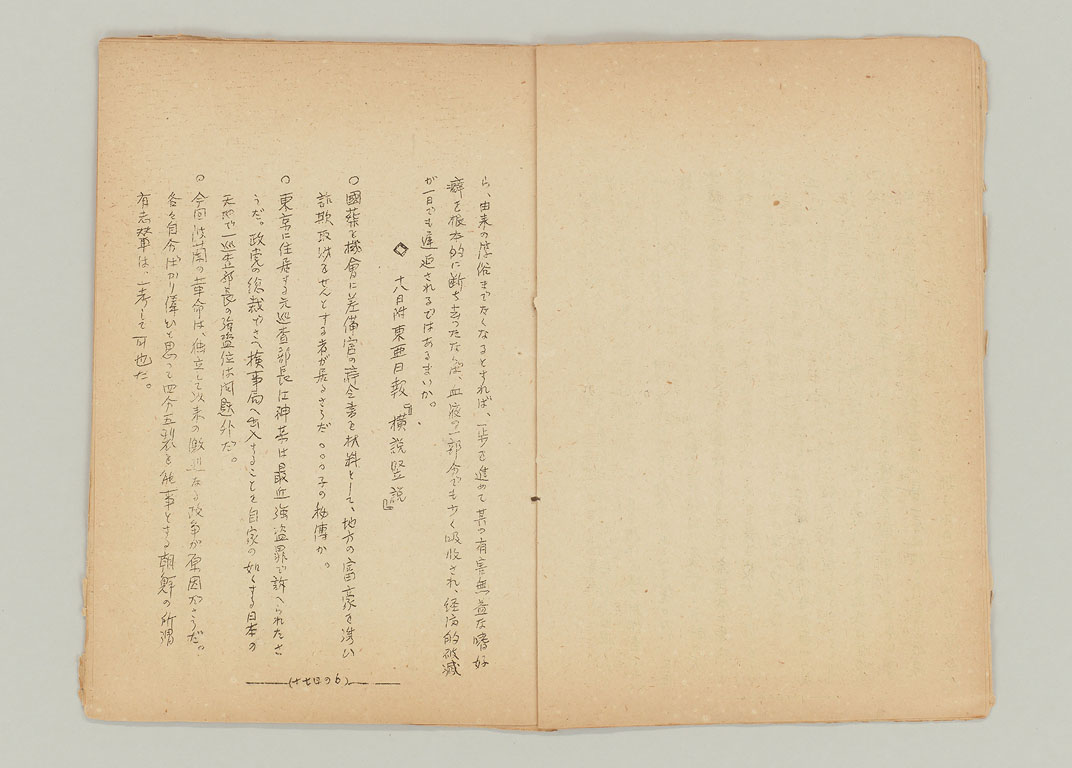 ら、由来の俗までなくなるとすれば、一歩を進めて其の有害無益な嗜好
癖を根本的に断ち去つたなら、血液の一部分でも少く吸收され、経済的破滅
が一日でも遅延されるではあるまいか。
◇ 十八日附東亜日報『橫説竪説』
○國葬を機會に差備官の辞令書を材料として、地方の富豪を
詐欺取するせんとする者が居るさうだ。○○○子の秘傳か。
○東京に住居する元巡査部長は最近強盗罪で訴へられたさ
うだ。政党の総裁がさへ検事局へ出入することを自家の如くする日本の
天地で一巡査部長の強盗位は問題外だ。
○今回波蘭の革命は、独立して以来の激甚なる政争が原因ださうだ。
各々自分ばかり偉いと思って四分五裂を能事とする朝鮮の所謂
有志輩は、一考して可也だ。
(十七日の6)